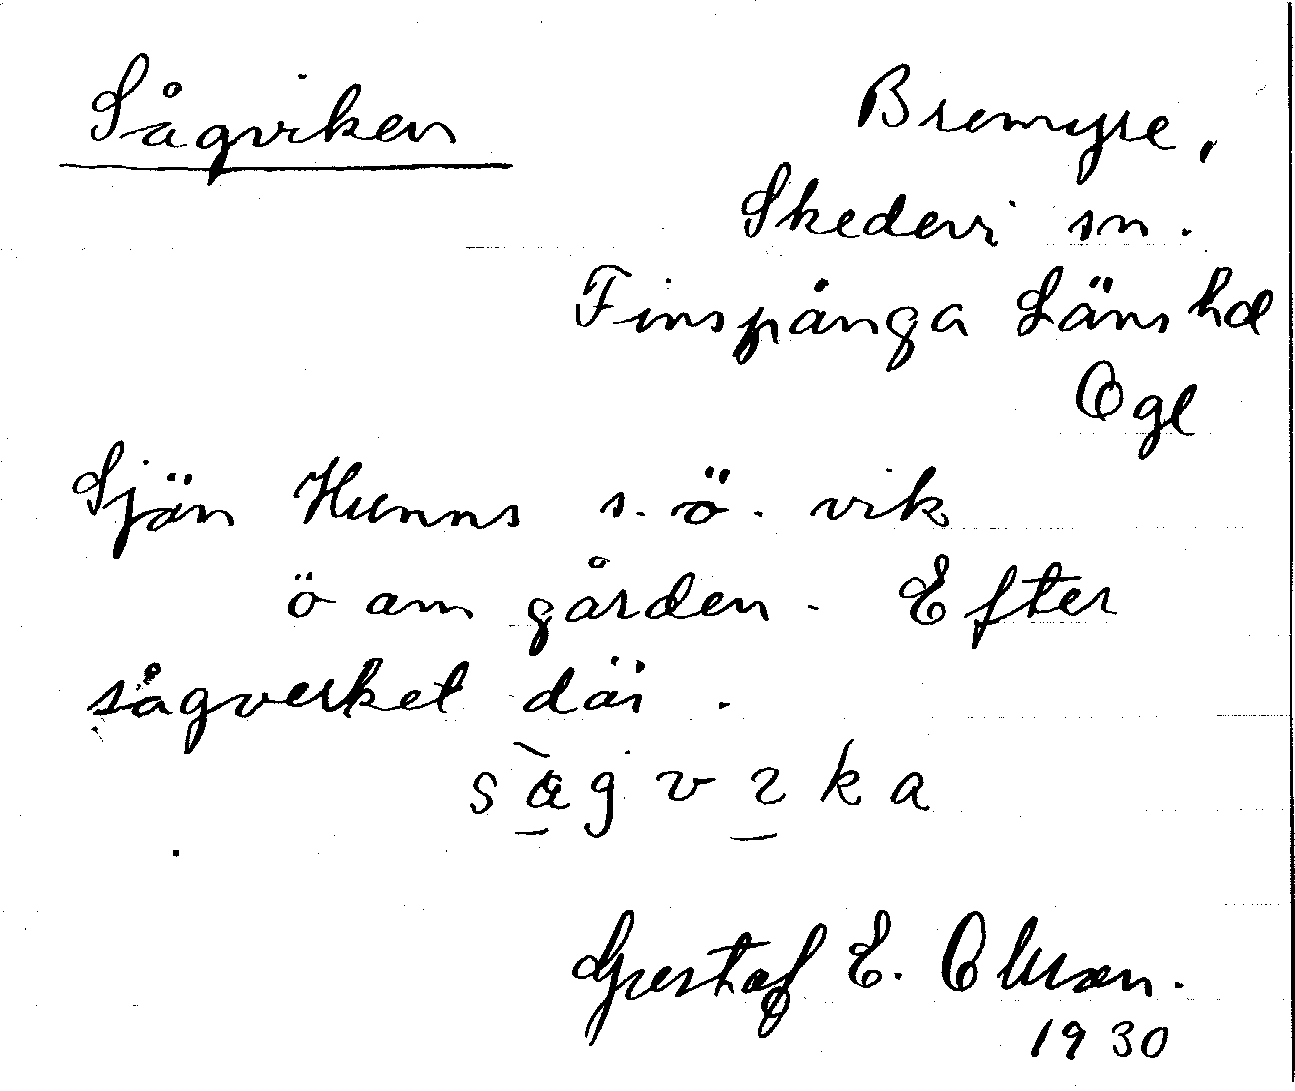 Sågviken
Bremyre,
Skedevi sn.
Finspånga Läns hd
Ögl
Sjön Hunns s.ö. vik
ö om gården. Efter
sågverket där.
Gustaf E. Olsson.
1930